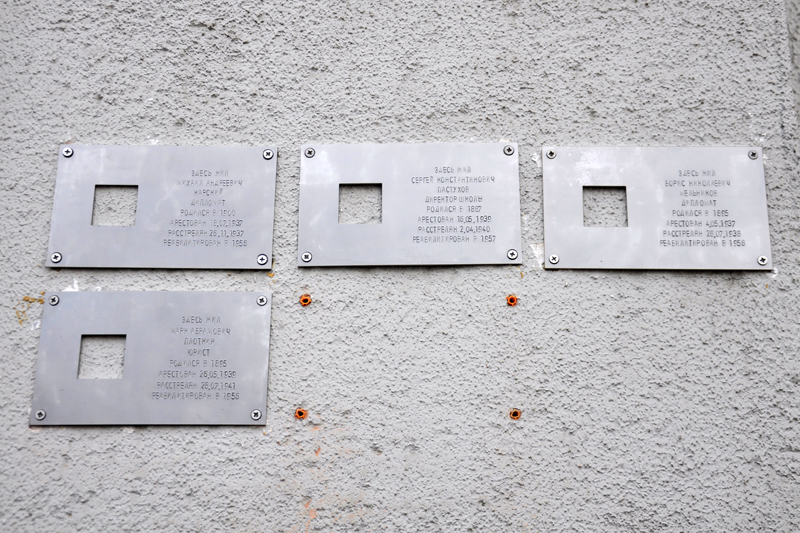 ЗДЕСЬ ЖИЛ
МИХАИЛ АНДРЕЕВИЧ
КАРСКИЙ
ДИПЛОМАТ
РОДИЛСЯ В 1900
АРЕСТОВАН 16.07.1937
РАССТРЕЛЯН 26.11.1937
РЕАБИЛИТИРОВАН В 1956
ЗДЕСЬ ЖИЛ
СЕРГЕЙ КОНСТАНТИНОВИЧ
ПАСТУХОВ
ДИРЕКТОР ШКОЛЫ
РОДИЛСЯ В 1887
АРЕСТОВАН 16.05.1939
РАССТРЕЛЯН 2.04.1940
РЕАБИЛИТИРОВАН В 1957
ЗДЕСЬ ЖИЛ
БОРИС НИКОЛАЕВИЧ
МЕЛЬНИКОВ
ДИПЛОМАТ
РОДИЛСЯ В 1895
АРЕСТОВАН 4.05.1937
РАССТРЕЛЯН 28.07.1938
РЕАБИЛИТИРОВАН В 1956
ЗДЕСЬ ЖИЛ
МАРК АБРАМОВИЧ
ПЛОТКИН
ЮРИСТ
РОДИЛСЯ В 1895
АРЕСТОВАН 26.05.1939
РАССТРЕЛЯН 28.07.1941
РЕАБИЛИТИРОВАН В 1956